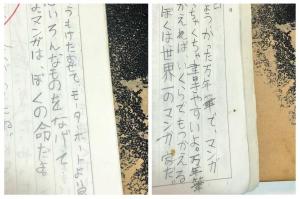 うもけた室で、モーターボートより
いろんなものをなげて…
マンガは、ぼくの命だよ
ようがった万年筆で、マンガ
ちゃくちゃ書きやすいよ。万年筆
かえれば、いくらでもつかえる
ぼくは世界一のマンガ家だ。